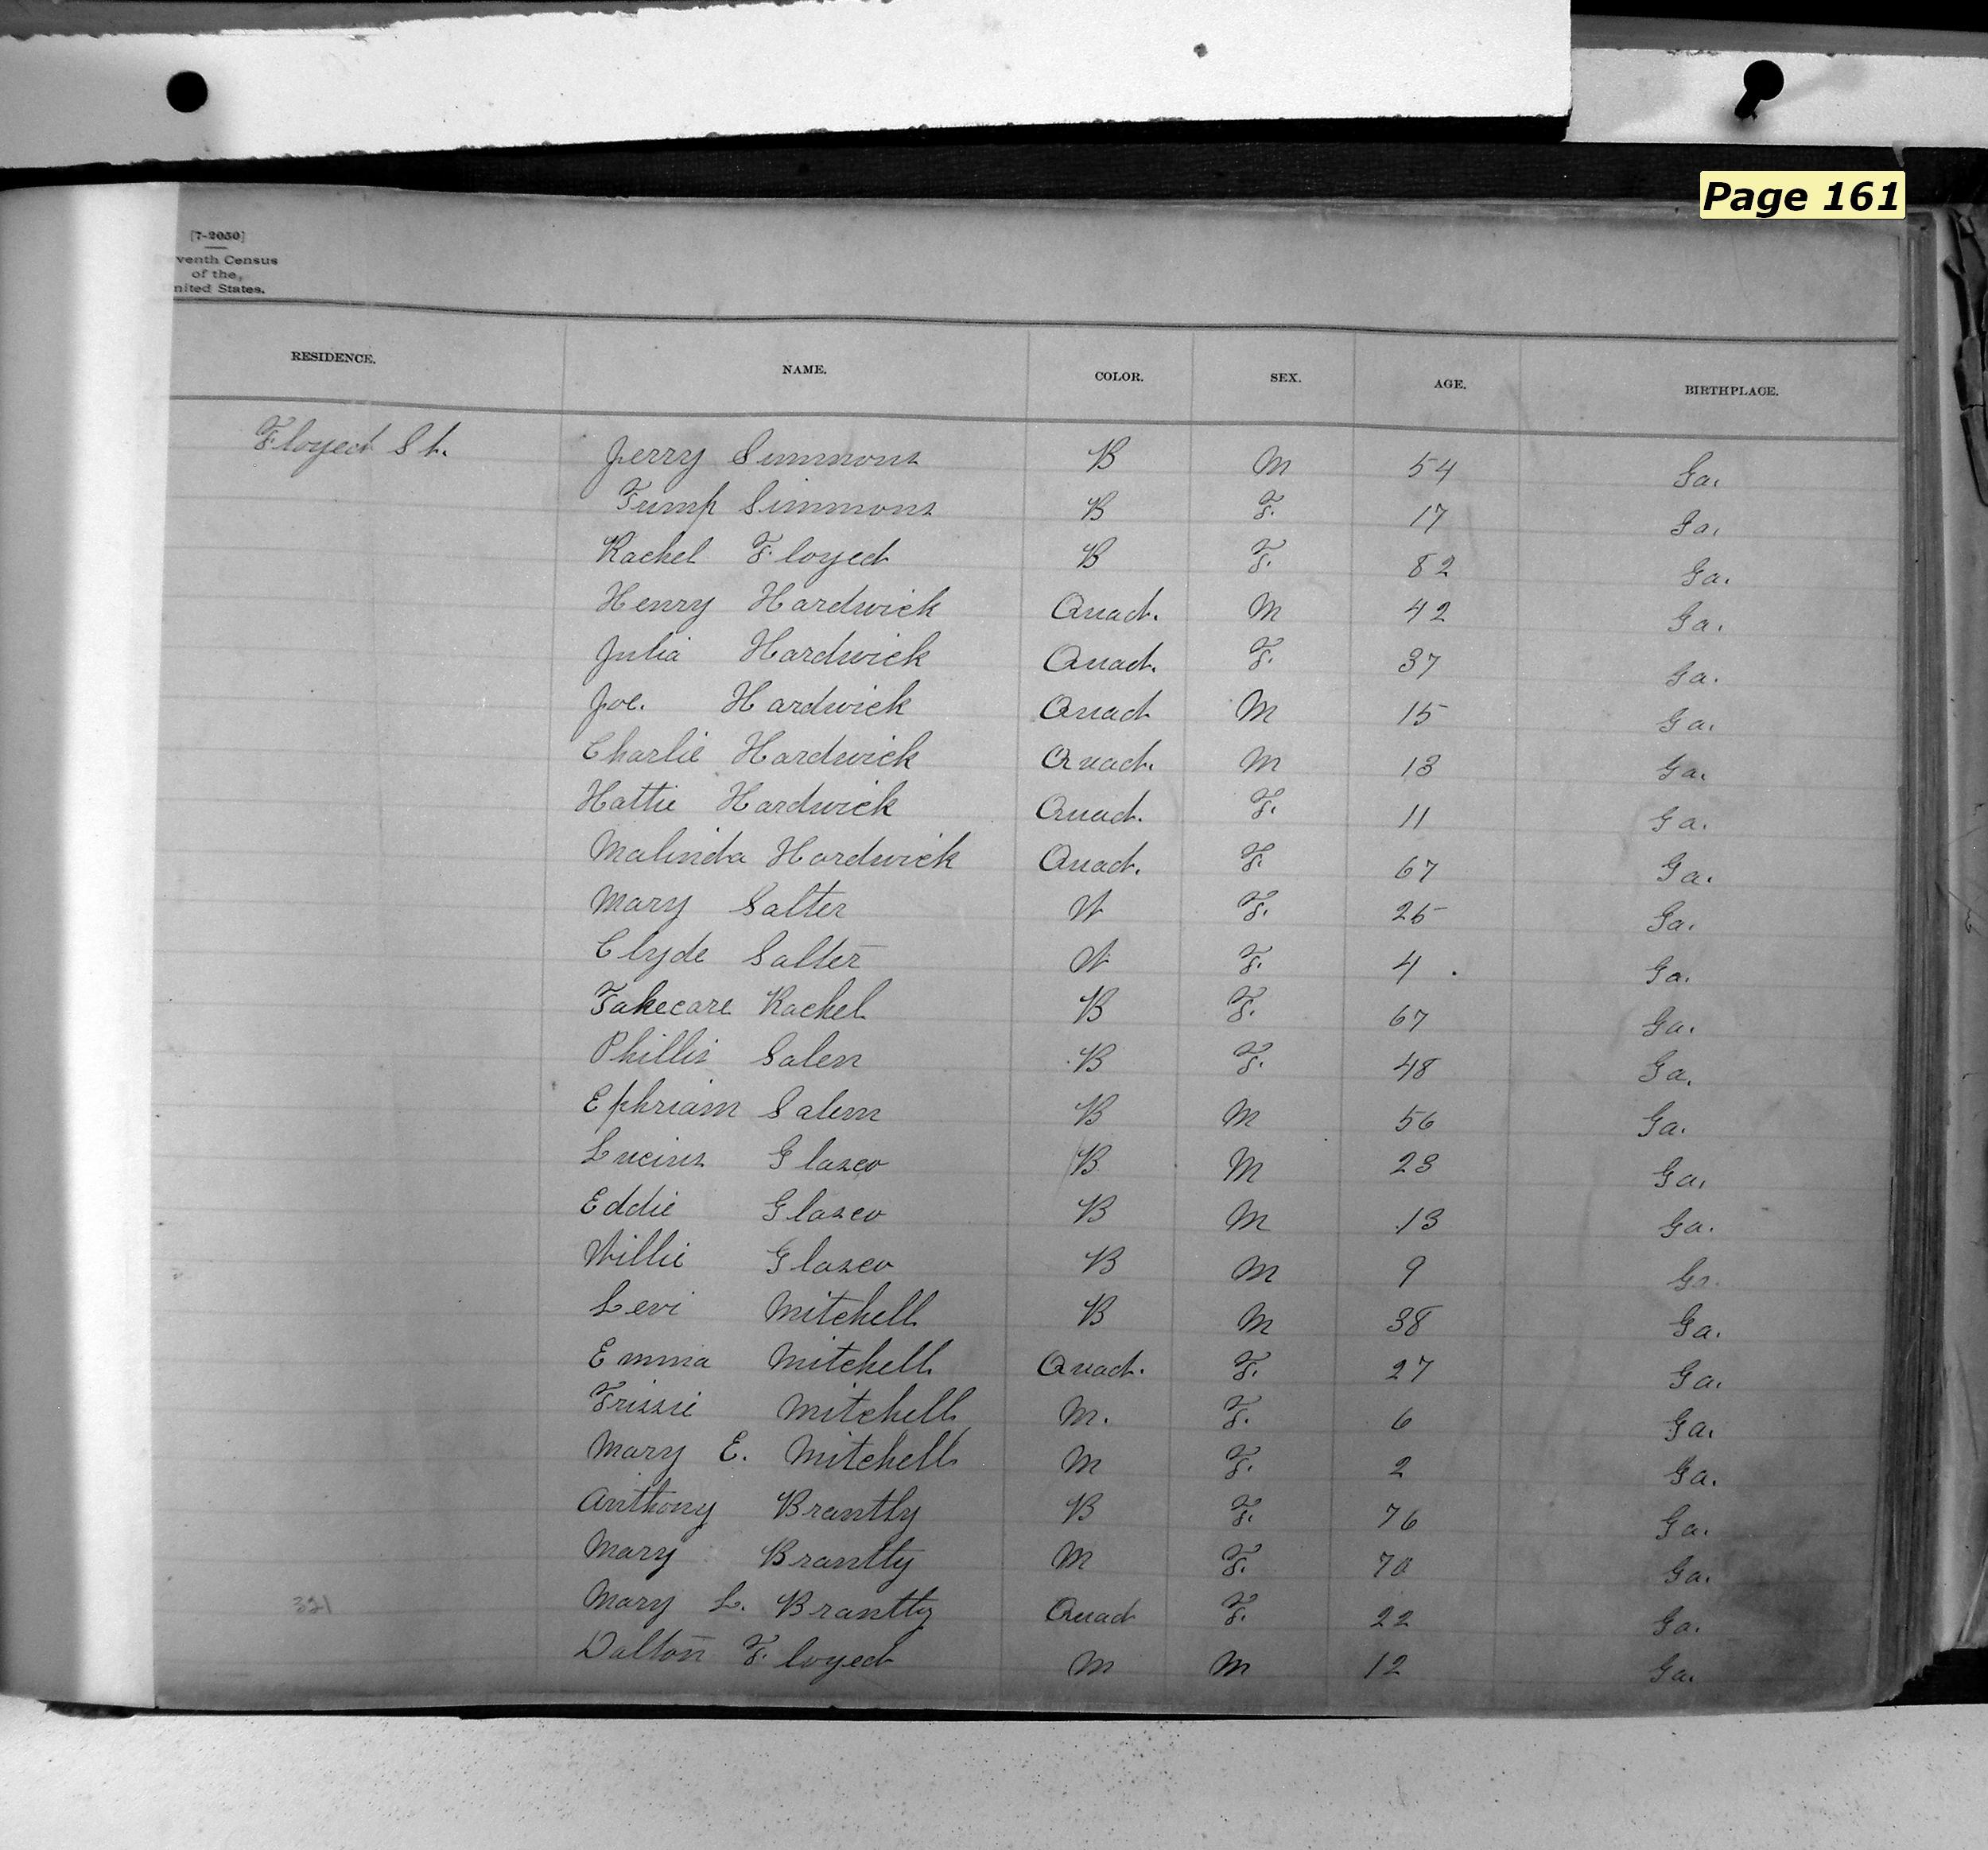 Page 161
[7-2050]
venth Census
of the,
nited States.
RESIDENCE. NAME. COLOR. SEX. AGE. BIRTHPLACE.
Floyed St. Jerry Simmons B M 54 Ga.
Simmons B F. 17 Ga.
Rachel Floyed B F. 82 Ga.
Henry Hardwick Quad. M 42 Ga.
Julia Hardwick Quad. F. 37 Ga.
Joe. Hardwick Quad M 15 Ga.
Charlie Hardwick Quad. M 13 Ga.
Hattie Hardwick Quad. F. 11 Ga.
Malinda Hardwick Quad. F. 67 Ga.
Mary Salter W F. 25 Ga.
Clyde Salter W F. 4 Ga.
Takecare Rachel B F. 67 Ga.
Phillis Salen B F. 48 Ga.
Ephriam Salem B M 56 Ga.
Lucius Glasco B M 23 Ga.
Eddie Glasco B M 13 Ga.
Willie Glasco B M 9 Ga.
Levi Mitchell B M 38 Ga.
Emma Mitchell Quad. F. 27 Ga.
Trissie Mitchell M. F. 6 Ga.
Mary E. Mitchell M F. 2 Ga.
Anthony Brantly B F. 76 Ga.
Mary Brantly M F. 70 Ga.
321 Mary L. Brantly Quad F. 22 Ga.
Dalton Floyed M M 12 Ga.